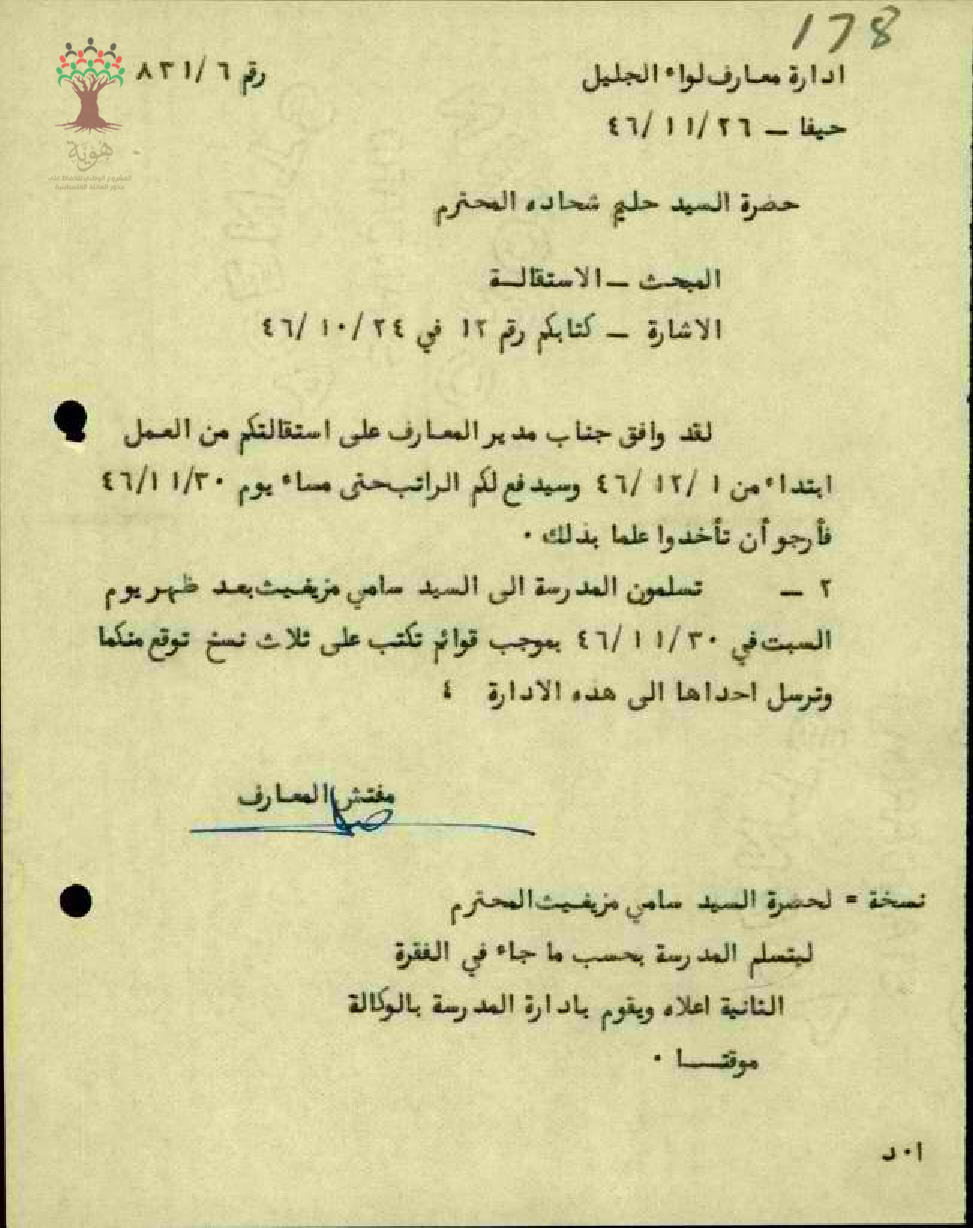 178
ادارة معارف لواء الجليل
رقم ٨٣١/٦
حيفا – ٤٦/١١/٢٦
هوية
المشروع الوطني للحفاظ على
جذور العائلة الفلسطينية
حضرة السيد حليم شحاده المحترم
المبحث – الاستقالة
الاشارة – كتابكم رقم ١٢ في ٤٦/١٠/٢٤
لقد وافق جناب مدير المعارف على استقالتكم من العمل
ابتداء من ٤٦/١٢/١ وسيدفع لكم الراتب حتى مساء يوم ٤٦/١١/٣٠
فأرجو أن تأخدوا علما بذلك ٠
٢ – تسلمون المدرسة الى السيد سامي مزيغيث بعد ظهر يوم
السبت في ٤٦/١١/٣٠ بموجب قوائم تكتب على ثلاث نسخ توقع منكما
وترسل احداها الى هذه الادارة ٤
مفتش المعارف
نسخة = لحضرة السيد سامي مزيغيث المحترم
ليتسلم المدرسة بحسب ما جاء في الفقرة
الثانية اعلاه ويقوم بادارة المدرسة بالوكالة
موقتا ٠
ا٠د